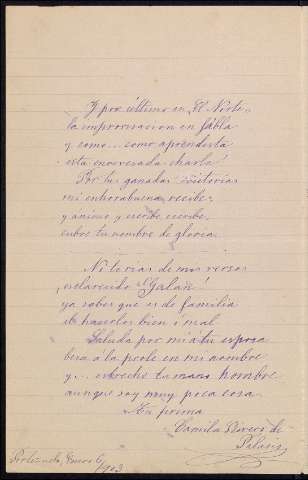 Y por último en "El Norte"
la improvisacion en fabla
y como... como aprendistá
esta enversada charla!
Por tus ganadas victorias
mi enhorabuena, recibe;
y animo y escribe escribe,
cubre tu nombre de gloria.
No te rias de mis versos
esclarecido "Galan"!
ya sabes que es de familia
el hacerlos bien ó mal.
Saluda por mi á tu esposa
besa á la prole en mi nombre
y... estrecho tu mano hombre
aunque soy muy poca cosa.
Tu prima
Camila Rivero de
Palacio
Enero 6/903